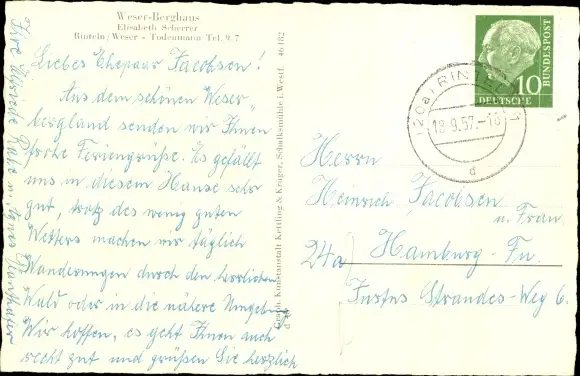 Weser-Berghaus
Elisabeth Scherrer
Rinteln/Weser - Todenmann Tel. 9.7
Liebes Ehepaar Jacobsen!
Aus dem schönen Weser
bergland senden wir Ihnen
frohe Feriengrüße. Es gefällt
uns in diesem Hause sehr
gut, trotz des wenig guten
Wetters machen wir täglich
Wanderungen durch den herrlichen
Wald oder in die nähere Umgebg.
Wir hoffen, es geht Ihnen auch
recht gut und grüßen Sie herzlich
Ihre
Graph. Kunstanstalt Kettling & Krüger, Schalksmühle i. Westf. 46 182
DEUTSCHE
BUNDESPOST
10
(20a) RINTELN
18.9.57.-18
d
Herrn
Heinrich Jacobsen
u. Frau
24a Hamburg-Fu.
Justus Strandes-Weg 6.